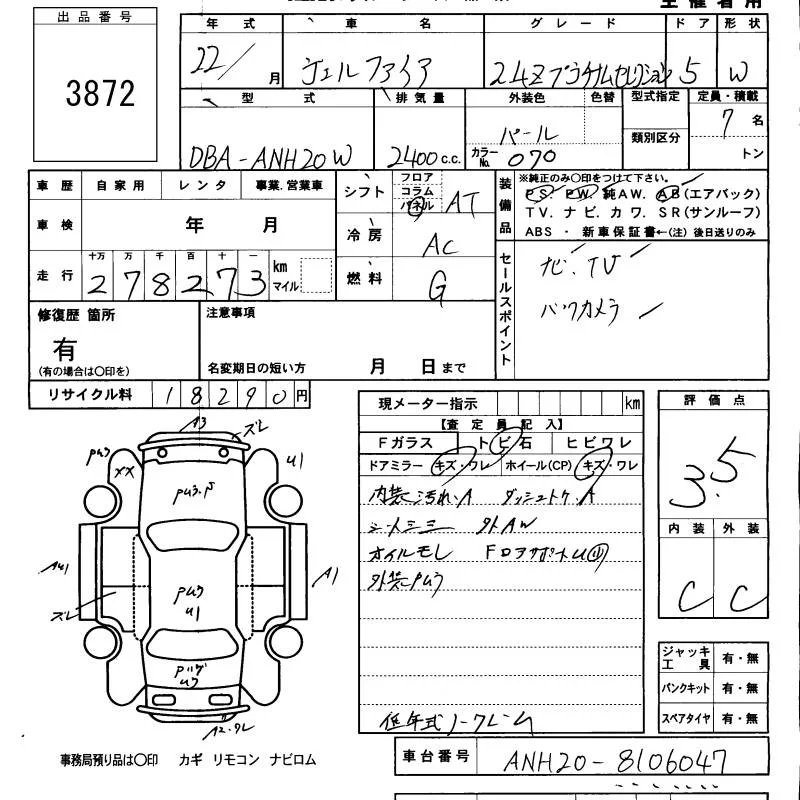 出品番号
3872
年式 車名 グレード ドア 形状
22/ 月 ヴェルファイア 2.4Zプラチナムセレクション 5 W
型式 排気量 外装色 色替 型式指定 定員・積載
類別区分
DBA-ANH20W 2400c.c. パール 7名
カラーNo. 070 トン
車歴 自家用 レンタ 事業.営業車
車検 年 月
走行 十万 万 千 百 十 一
278273 km マイル
シフト フロア コラム パネル AT
冷房 AC
燃料 G
装備品
※純正のみ○印をつけて下さい。
PS. PW. 純AW. AB(エアバック)
TV. ナビ. カワ. SR(サンルーフ)
ABS ・ 新車保証書←(注) 後日送りのみ
セールスポイント
ナビ.TV
バックカメラ
修復歴 箇所
有
(有の場合は○印を)
注意事項
名変期日の短い方 月 日まで
リサイクル料 18290円
現メーター指示 km
【査定員記入】
Fガラス トビ石 ヒビワレ
ドアミラー キズ・ワレ ホイール(CP) キズ・ワレ
内装汚れ.A ダッシュトケ.A
シートシミ 外AW
オイルモレ FロアサポートU
外装PUラ
低年式ノークレーム
評価点
3.5
内装 外装
C C
A3
ズレ
U1
XX
U1
AU1
ズレ
A1
ジャッキ工具 有・無
パンクキット 有・無
スペアタイヤ 有・無
事務局預り品は○印 カギ リモコン ナビロム
車台番号 ANH20-8106047